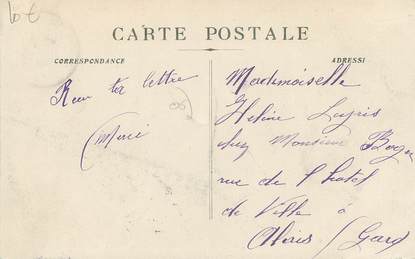 10 €
CARTE POSTALE
CORRESPONDANCE
ADRESSE
Reçu ta lettre
Merci
Mademoiselle
Hélène
chez Monsieur
rue de l'hotel
de Ville à
(Gard)